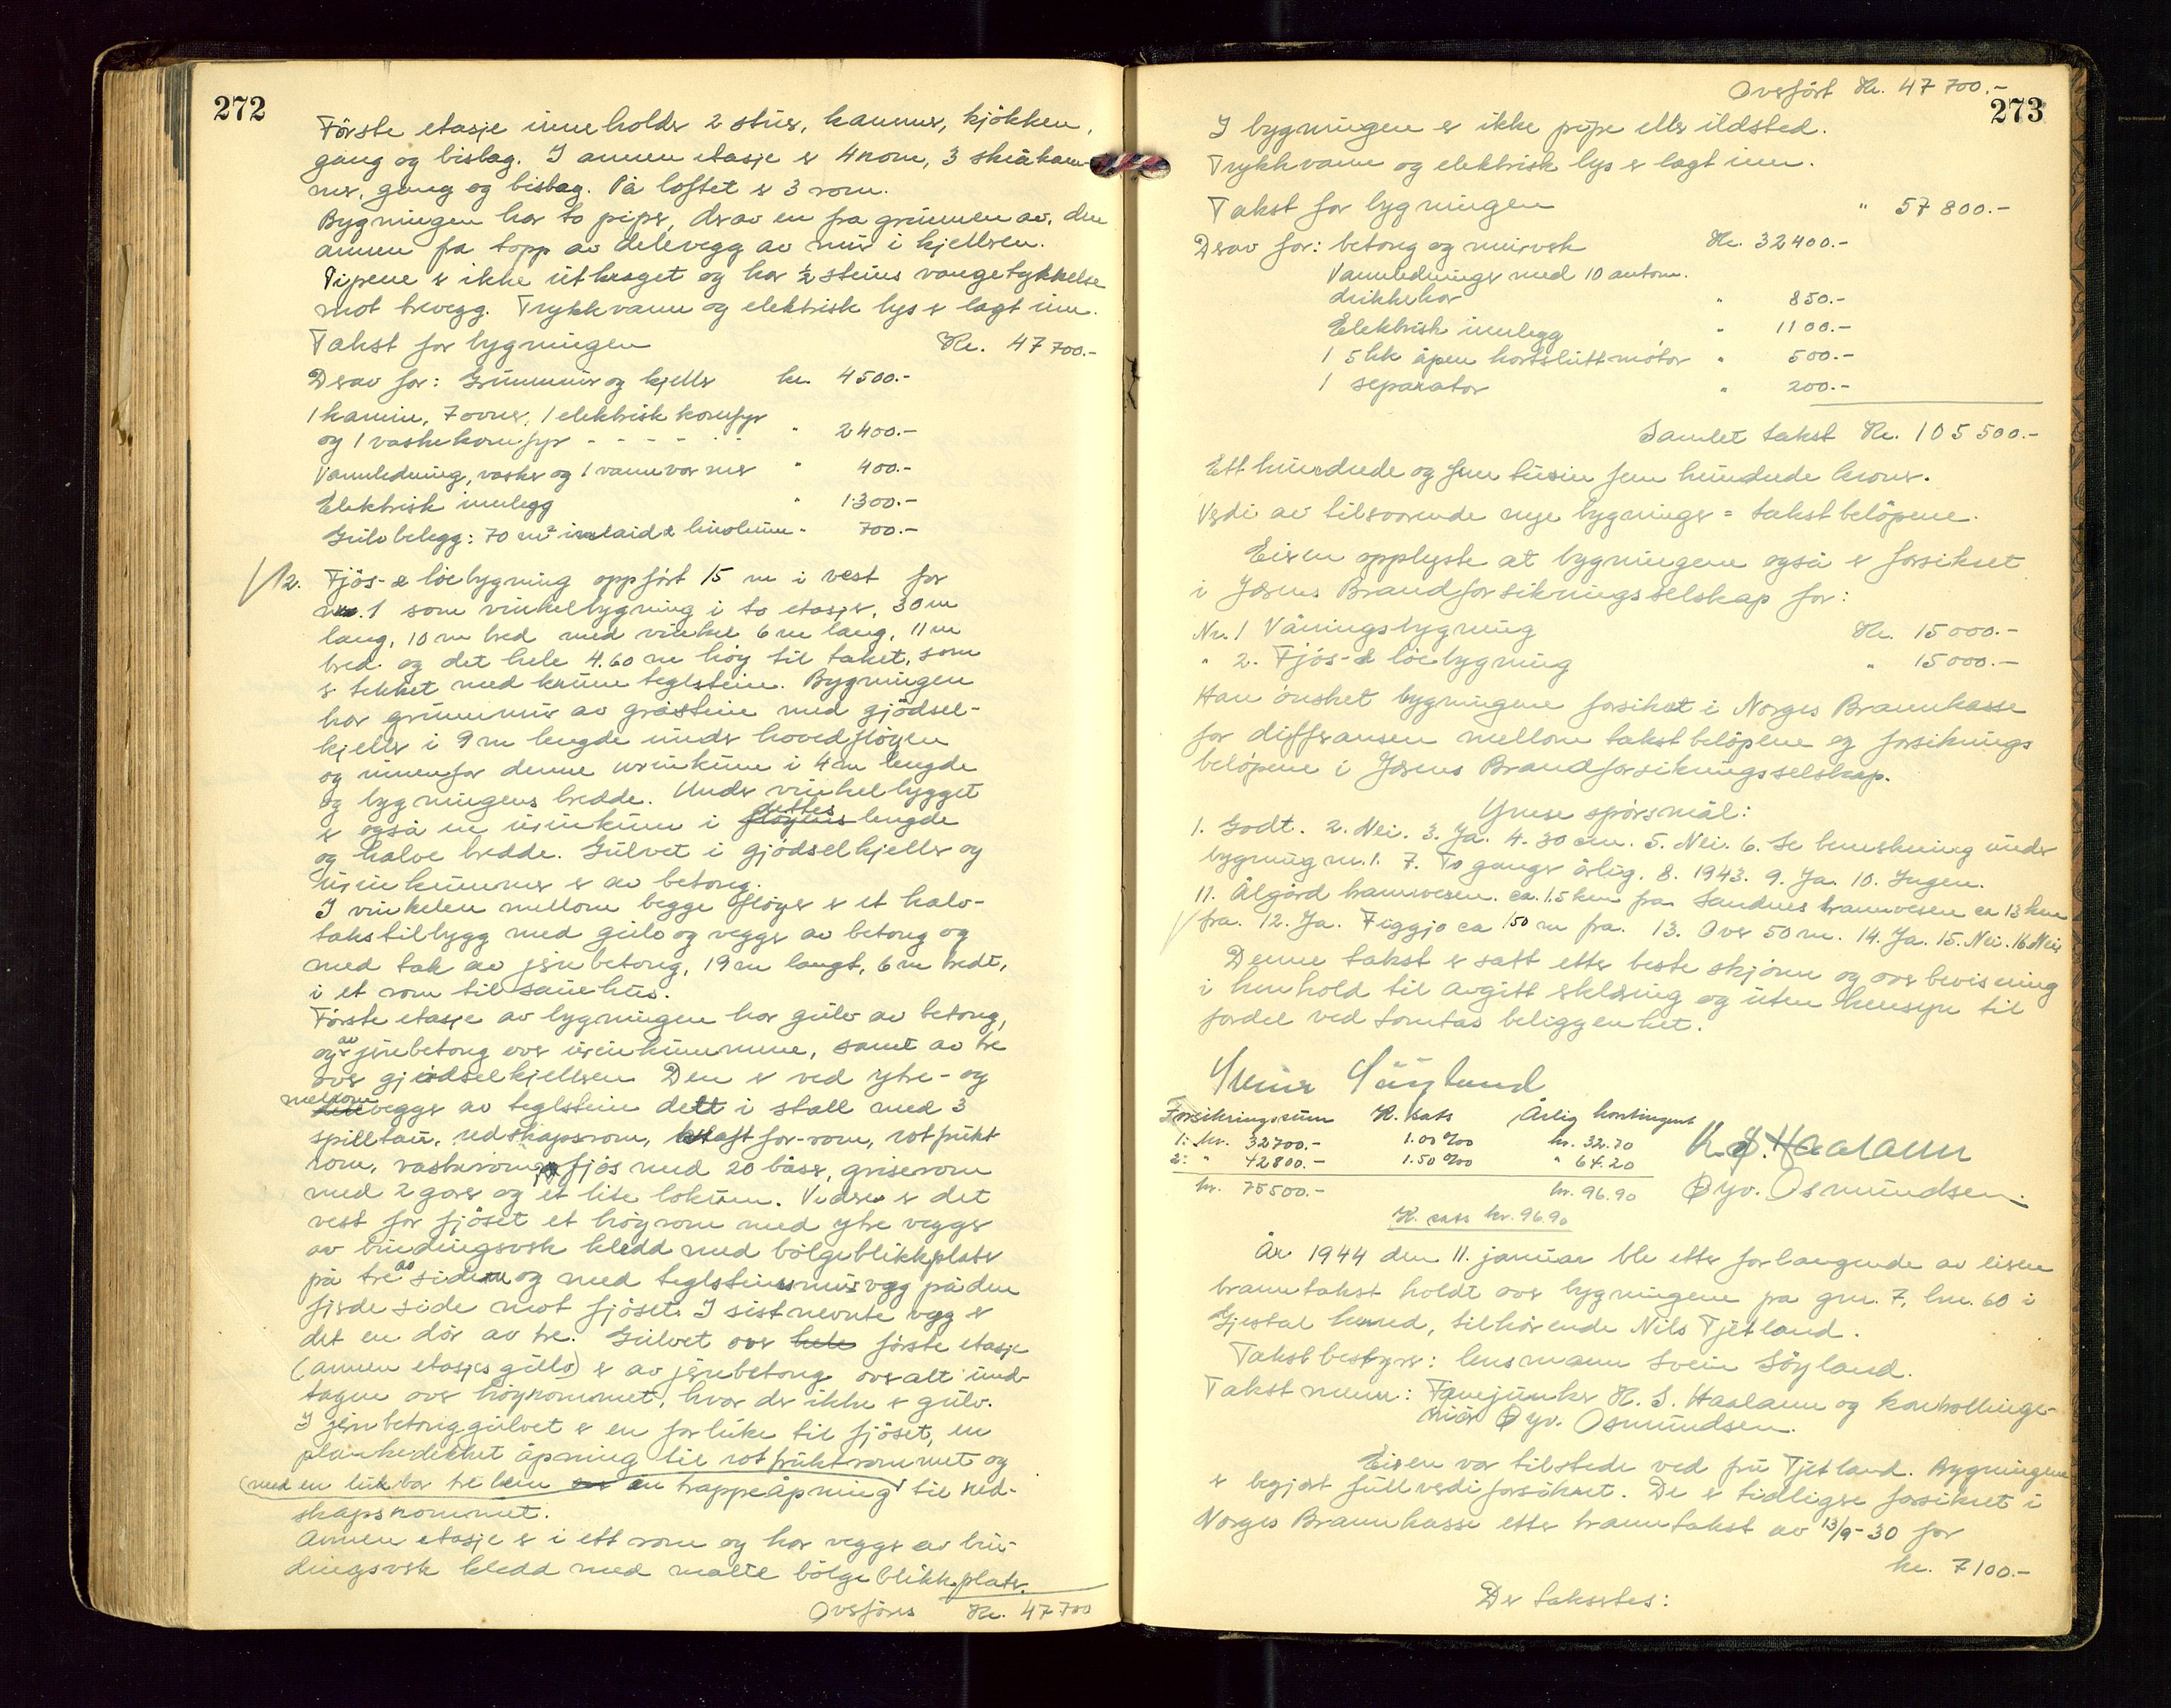 272
Förste etasje inneholder 2 stuer, kammer, kjökken,
gang og bislag. I annen etasje er 4 rom, 3 skråkam-
mer, gang og bislag. På loftet er 3 rom.
Bygningen har to piper, derav en fra grunnen av, den
annen fra topp av delevegg av mur i kjelleren.
Pipene er ikke utkraget og har ½ steins vangetykkelse
mot trevegg. Trykkvann og elektrisk lys er lagt inn.
Takst for bygningen Kr. 47 700.-
Derav for: Grunnmur og kjeller kr. 4500.-
1 kamin, 7 ovner, 1 elektrisk komfyr
og 1 vaskekomfyr - - - - - - " 2400.-
Vannledning, vasker og 1 vannvarmer " 400.-
Elektrisk innlegg " 1300.-
Gulvbelegg: 70 m² inlaid & linoleum " 700.-
2. Fjös- & löebygning oppfört 15 m i vest for
nr. 1 som vinkelbygning i to etasjer, 30 m
lang, 10 m bred med vinkel 6 m lang, 11 m
bred og det hele 4.60 m höy til taket, som
er tekket med krum teglstein. Bygningen
har grunnmur av gråstein med gjödsel-
kjeller i 9 m lengde under hovedflöyen
og innenfor denne urinkum i 4 m lengde
og bygningens bredde. Under vinkelbygget
er også en urinkum i flöyens dettes lengde
og halve bredde. Gulvet i gjödselkjeller og
urinkummer er av betong.
I vinkelen mellom begge flöyer er et halv-
takstilbygg med gulv og vegger av betong og
med tak av jernbetong, 19 m langt, 6 m bredt,
i et rom til sauehus.
Förste etasje av bygningen har gulv av betong,
og av jernbetong over urinkummene, samt av tre
over gjödselkjelleren. Den er ved ytre- og
mellomvegger av teglstein delt i stall med 3
spilltau, redskapsrom, kraftfor-rom, rotfrukt
rom, vaskerom, fjös med 20 båser, griserom
med 2 garer og et lite lokum. Videre er det
vest for fjöset et höyrom med ytre vegger
av bindingsverk kledd med bölgeblikkplater
på tre av sidene og med teglsteinsmur vegg på den
fjerde side mot fjöset. I sistnevnte vegg er
det en dör av tre. Gulvet over hele förste etasje
(annen etasjes gulv) er av jernbetong overalt und-
tagen over höyrommet, hvor der ikke er gulv.
I jernbetonggulvet er en forluke til fjöset, en
plankedekket åpning til rotfruktrommet og
(med en lukbar tre lem en trappeåpning) til red-
skapsrommet.
Annen etasje er i ett rom og har vegger av bin-
dingsverk kledd med malte bölgeblikkplater.
Overföres Kr. 47 700
273
Overfört Kr. 47 700.-
I bygningen er ikke pipe eller ildsted.
Trykkvann og elektrisk lys er lagt inn.
Takst for bygningen " 57 800.-
Derav for: betong og murverk Kr. 32400.-
Vannledninger med 10 autom.
drikkekar " 850.-
Elektrisk innlegg " 1100.-
1 5 hk åpen kortsluttmotor " 500.-
1 separator " 200.-
Samlet takst Kr. 105 500.-
Ett hundrede og fem tusin fem hundrede kroner.
Verdi av tilsvarende nye bygninger = takstbelöpene.
Eieren opplyste at bygningene også er forsikret
i Jærens Brandforsikringsselskap for:
Nr. 1 Våningsbygning Kr. 15 000.-
" 2. Fjös- & löebygning " 15 000.-
Han önsket bygningene forsikret i Norges Brannkasse
for differansen mellom takstbelöpene og forsikrings
belöpene i Jærens Brandforsikringsselskap.
Ymse spörsmål:
1. Godt. 2. Nei. 3. Ja. 4. 30 cm. 5. Nei. 6. Se bemerkning under
bygning nr. 1. 7. To ganger årlig. 8. 1943. 9. Ja. 10. Ingen.
11. Ålgård brannvesen ca. 1.5 km fra. Sandnes brannvesen ca 13 km
fra. 12. Ja. Figgjo ca 150 m fra. 13. Over 50 m. 14. Ja. 15. Nei. 16 Nei
Denne takst er satt etter beste skjönn og overbevisning
i henhold til avgitt erklæring og uten hensyn til
fordel ved tomtas beliggenhet.
Svein Söyland
Forsikringssum K. sats Årlig kontingent
1: kr. 32700.- 1.00 ‰ kr. 32.70
2: " 42800.- 1.50 ‰ " 64.20
kr. 75500.- kr. 96.90
K. sats kr. 96.90
K. S. Haaland
Øyv. Osmundsen.
År 1944 den 11. januar ble etter forlangende av eieren
branntakst holdt over bygningene på gnr. 7, bnr. 60 i
Gjestal herred, tilhörende Nils Tjetland.
Takstbestyrer: lensmann Svein Söyland.
Takstmenn: Fanejunker K. S. Haaland og kontrollinge-
niör Øyv. Osmundsen.
Eieren var tilstede ved fru Tjetland. Bygningene
er begjært fullverdiforsikret. De er tidligere forsikret i
Norges Brannkasse etter branntakst av 13/9-30 for
kr. 7100.-
Der takseres: